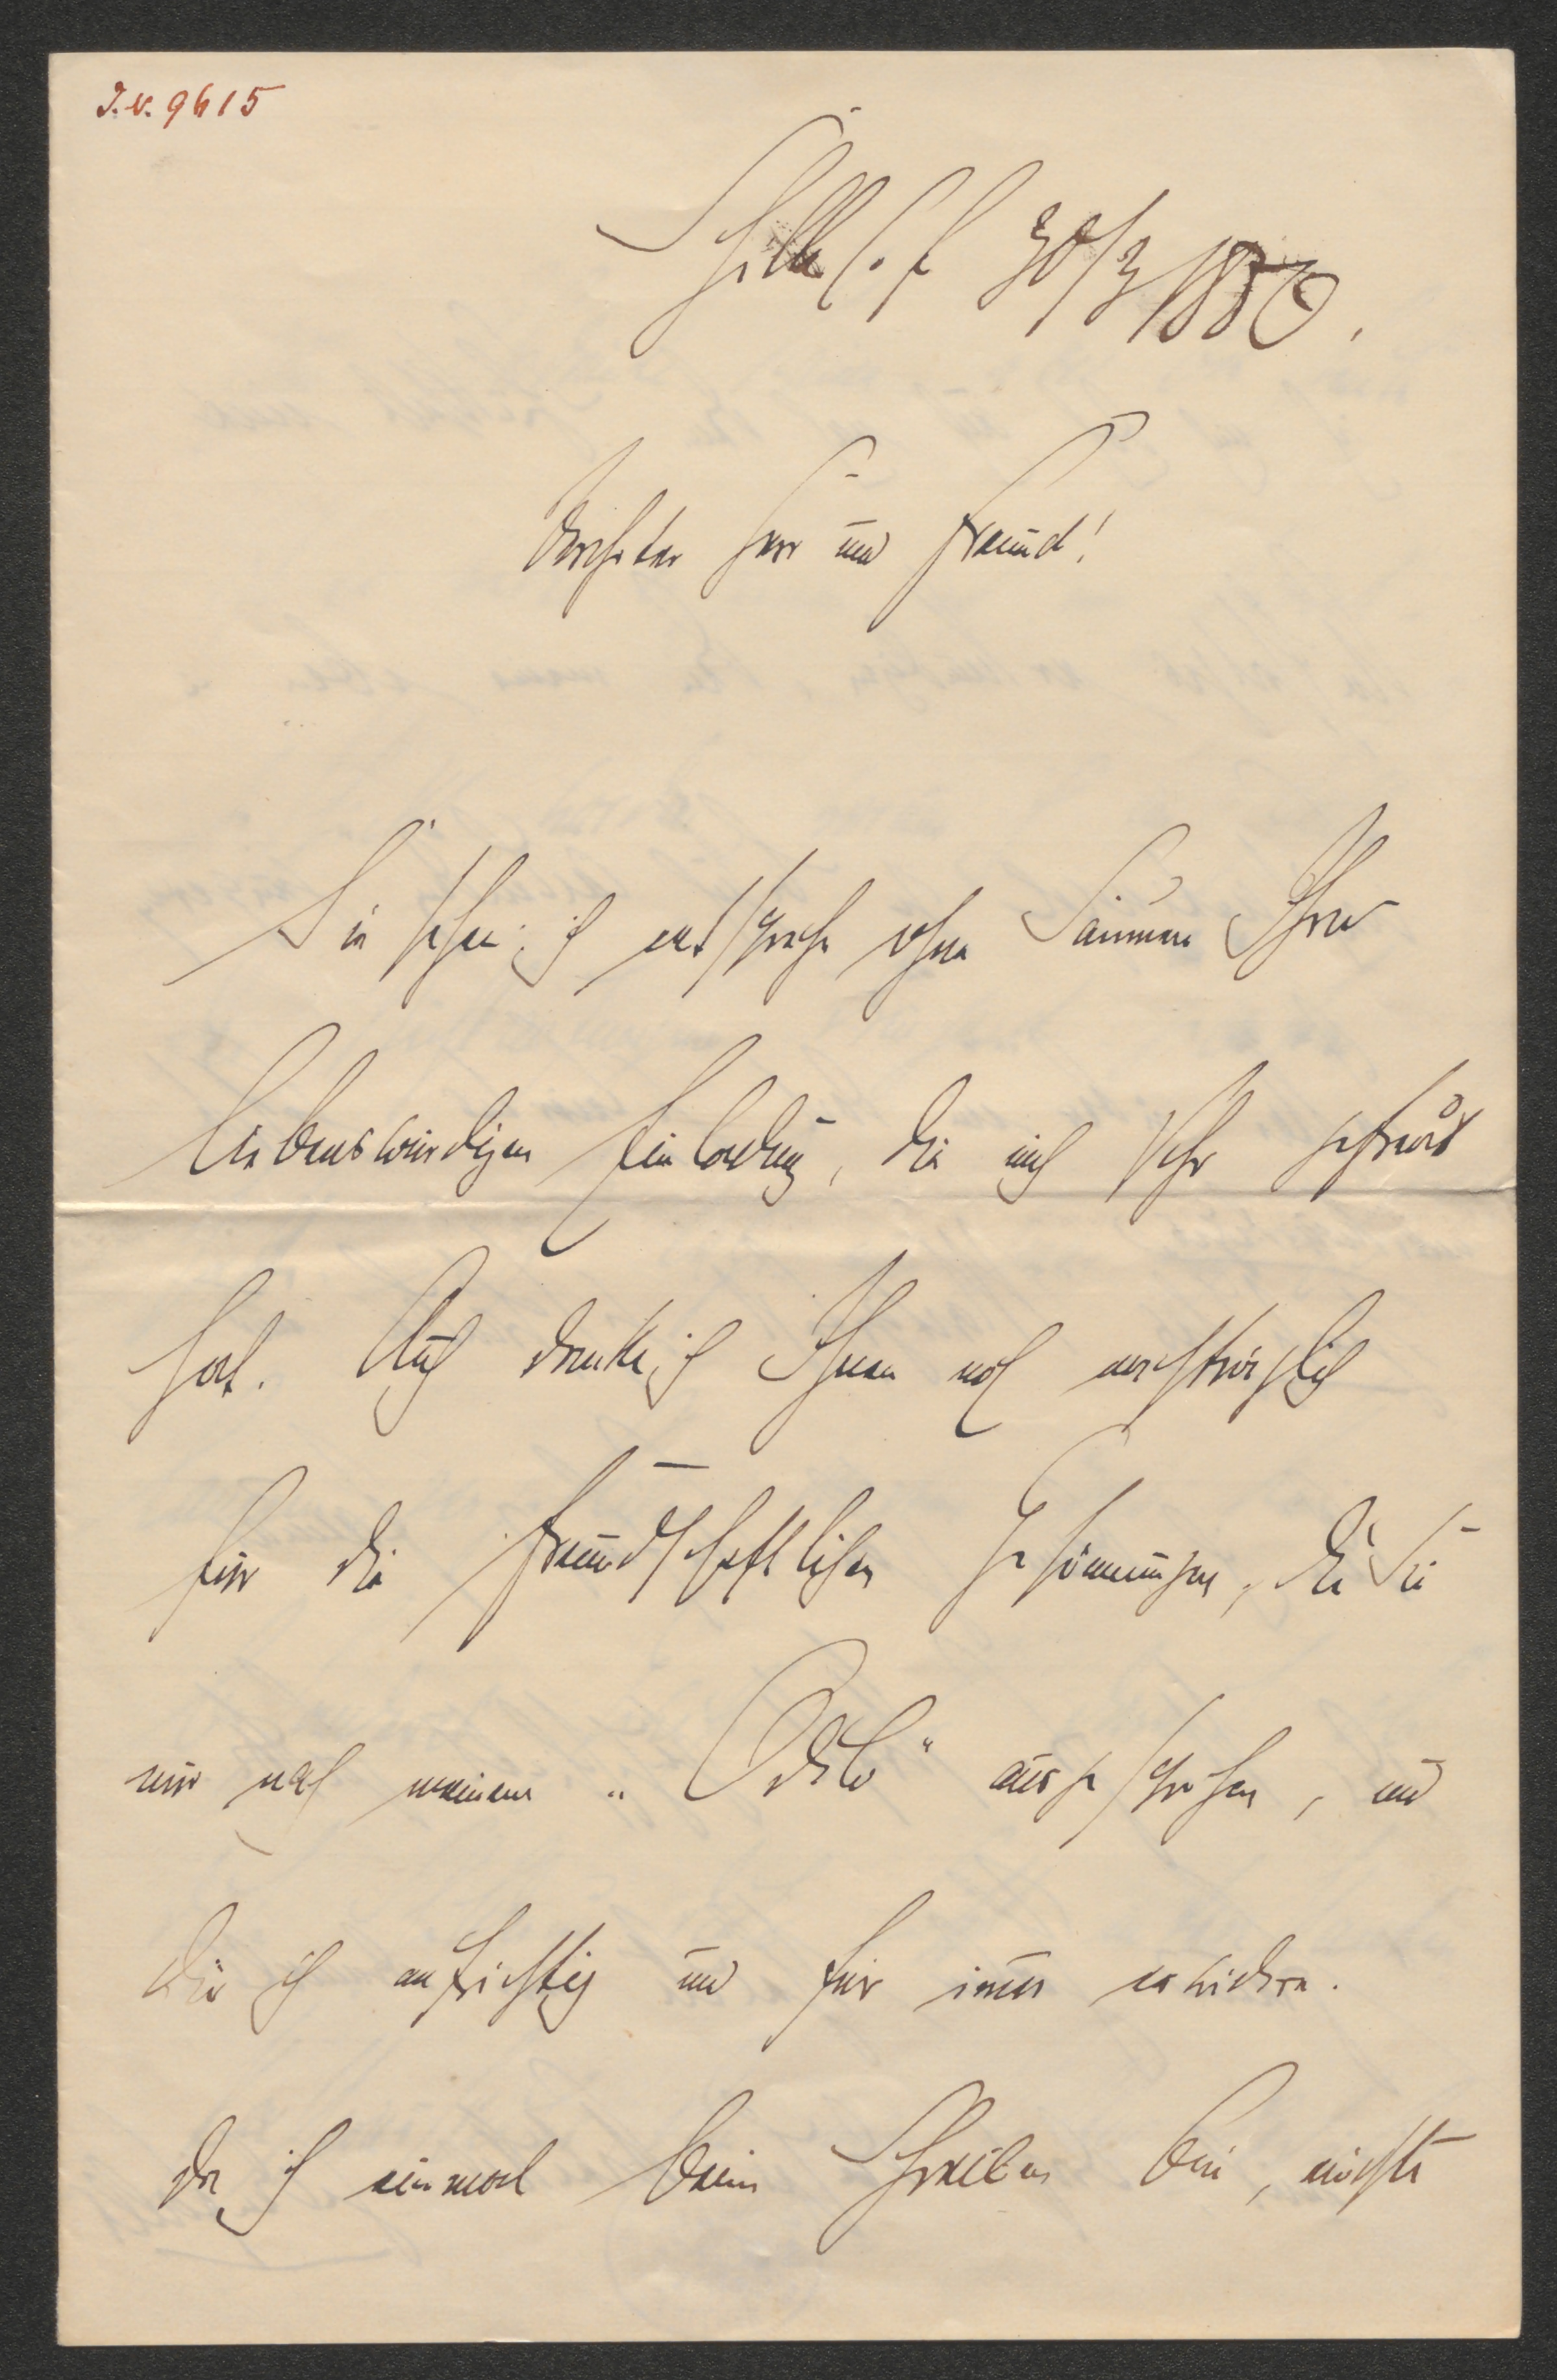 I.N. 9615
30/3 1880.
Verehrter Herr und Freund!
Sie sehen, ich entspreche ohne Säumen Ihrer
liebenswürdigen Einladung, die mich sehr gefreut
hat. Auch danke ich Ihnen noch nachträglich
für die freundschaftlichen Gesinnungen, die Sie
mir nach meinem „Odilo“ ausgesprochen, und
die ich aufrichtig und für immer erwidere.
Da ich einmal beim Schreiben bin, möchte